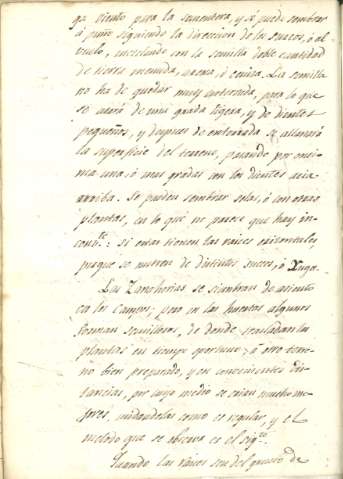 viento para la sementera, y se puede sembrar
á puño siguiendo la direccion de los surcos, ó al
vuelo, mezclando con la semilla doble cantidad
de tierra menuda, arena, ó ceniza. La semilla
no ha de quedar muy enterrada, para lo que
se usará de una grada ligera, y de dientes
pequeños, y despues de enterrada se allanará
la superficie del terreno, pasando por enci-
ma una, ó mas gradas con los dientes acia
arriba. Se pueden sembrar solas, ó con otras
plantas, en lo que no parece que hay in-
conte.: si estas tienen las raices orizontales,
porque se nutren de distintos sucos, ó Xugo.
Las Zanahorias se siembran de asiento
en los campos; pero en las huertas algunos
forman semilleros, de donde trasladan las
plantas en tiempo oportuno, á otro terre-
no bien preparado, y en convenientes dis-
tancias, por cuyo medio se crian mucho me-
jores, cuidandolas como es regular, y el
metodo que se observa es el sigte.
Quando las raices son del grueso de